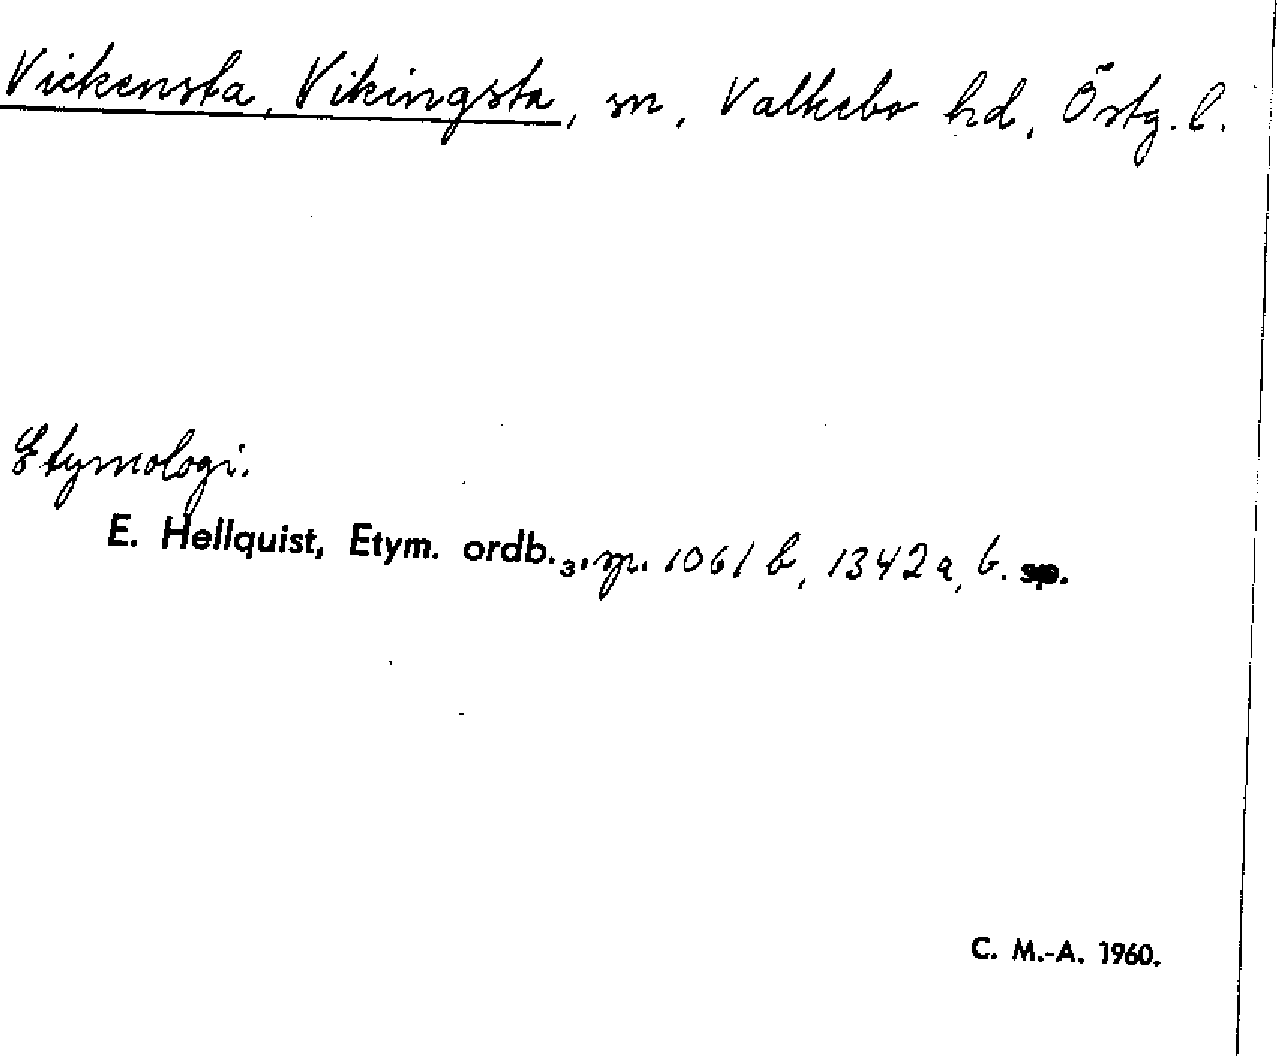 Vickensta, Vikingsta, sn, Valkebo hd, Östg. l.
Etymologi.
E. Hellquist, Etym. ordb.₃, sp. 1061 b, 1342 a, b. sp.
C. M.-A. 1960.